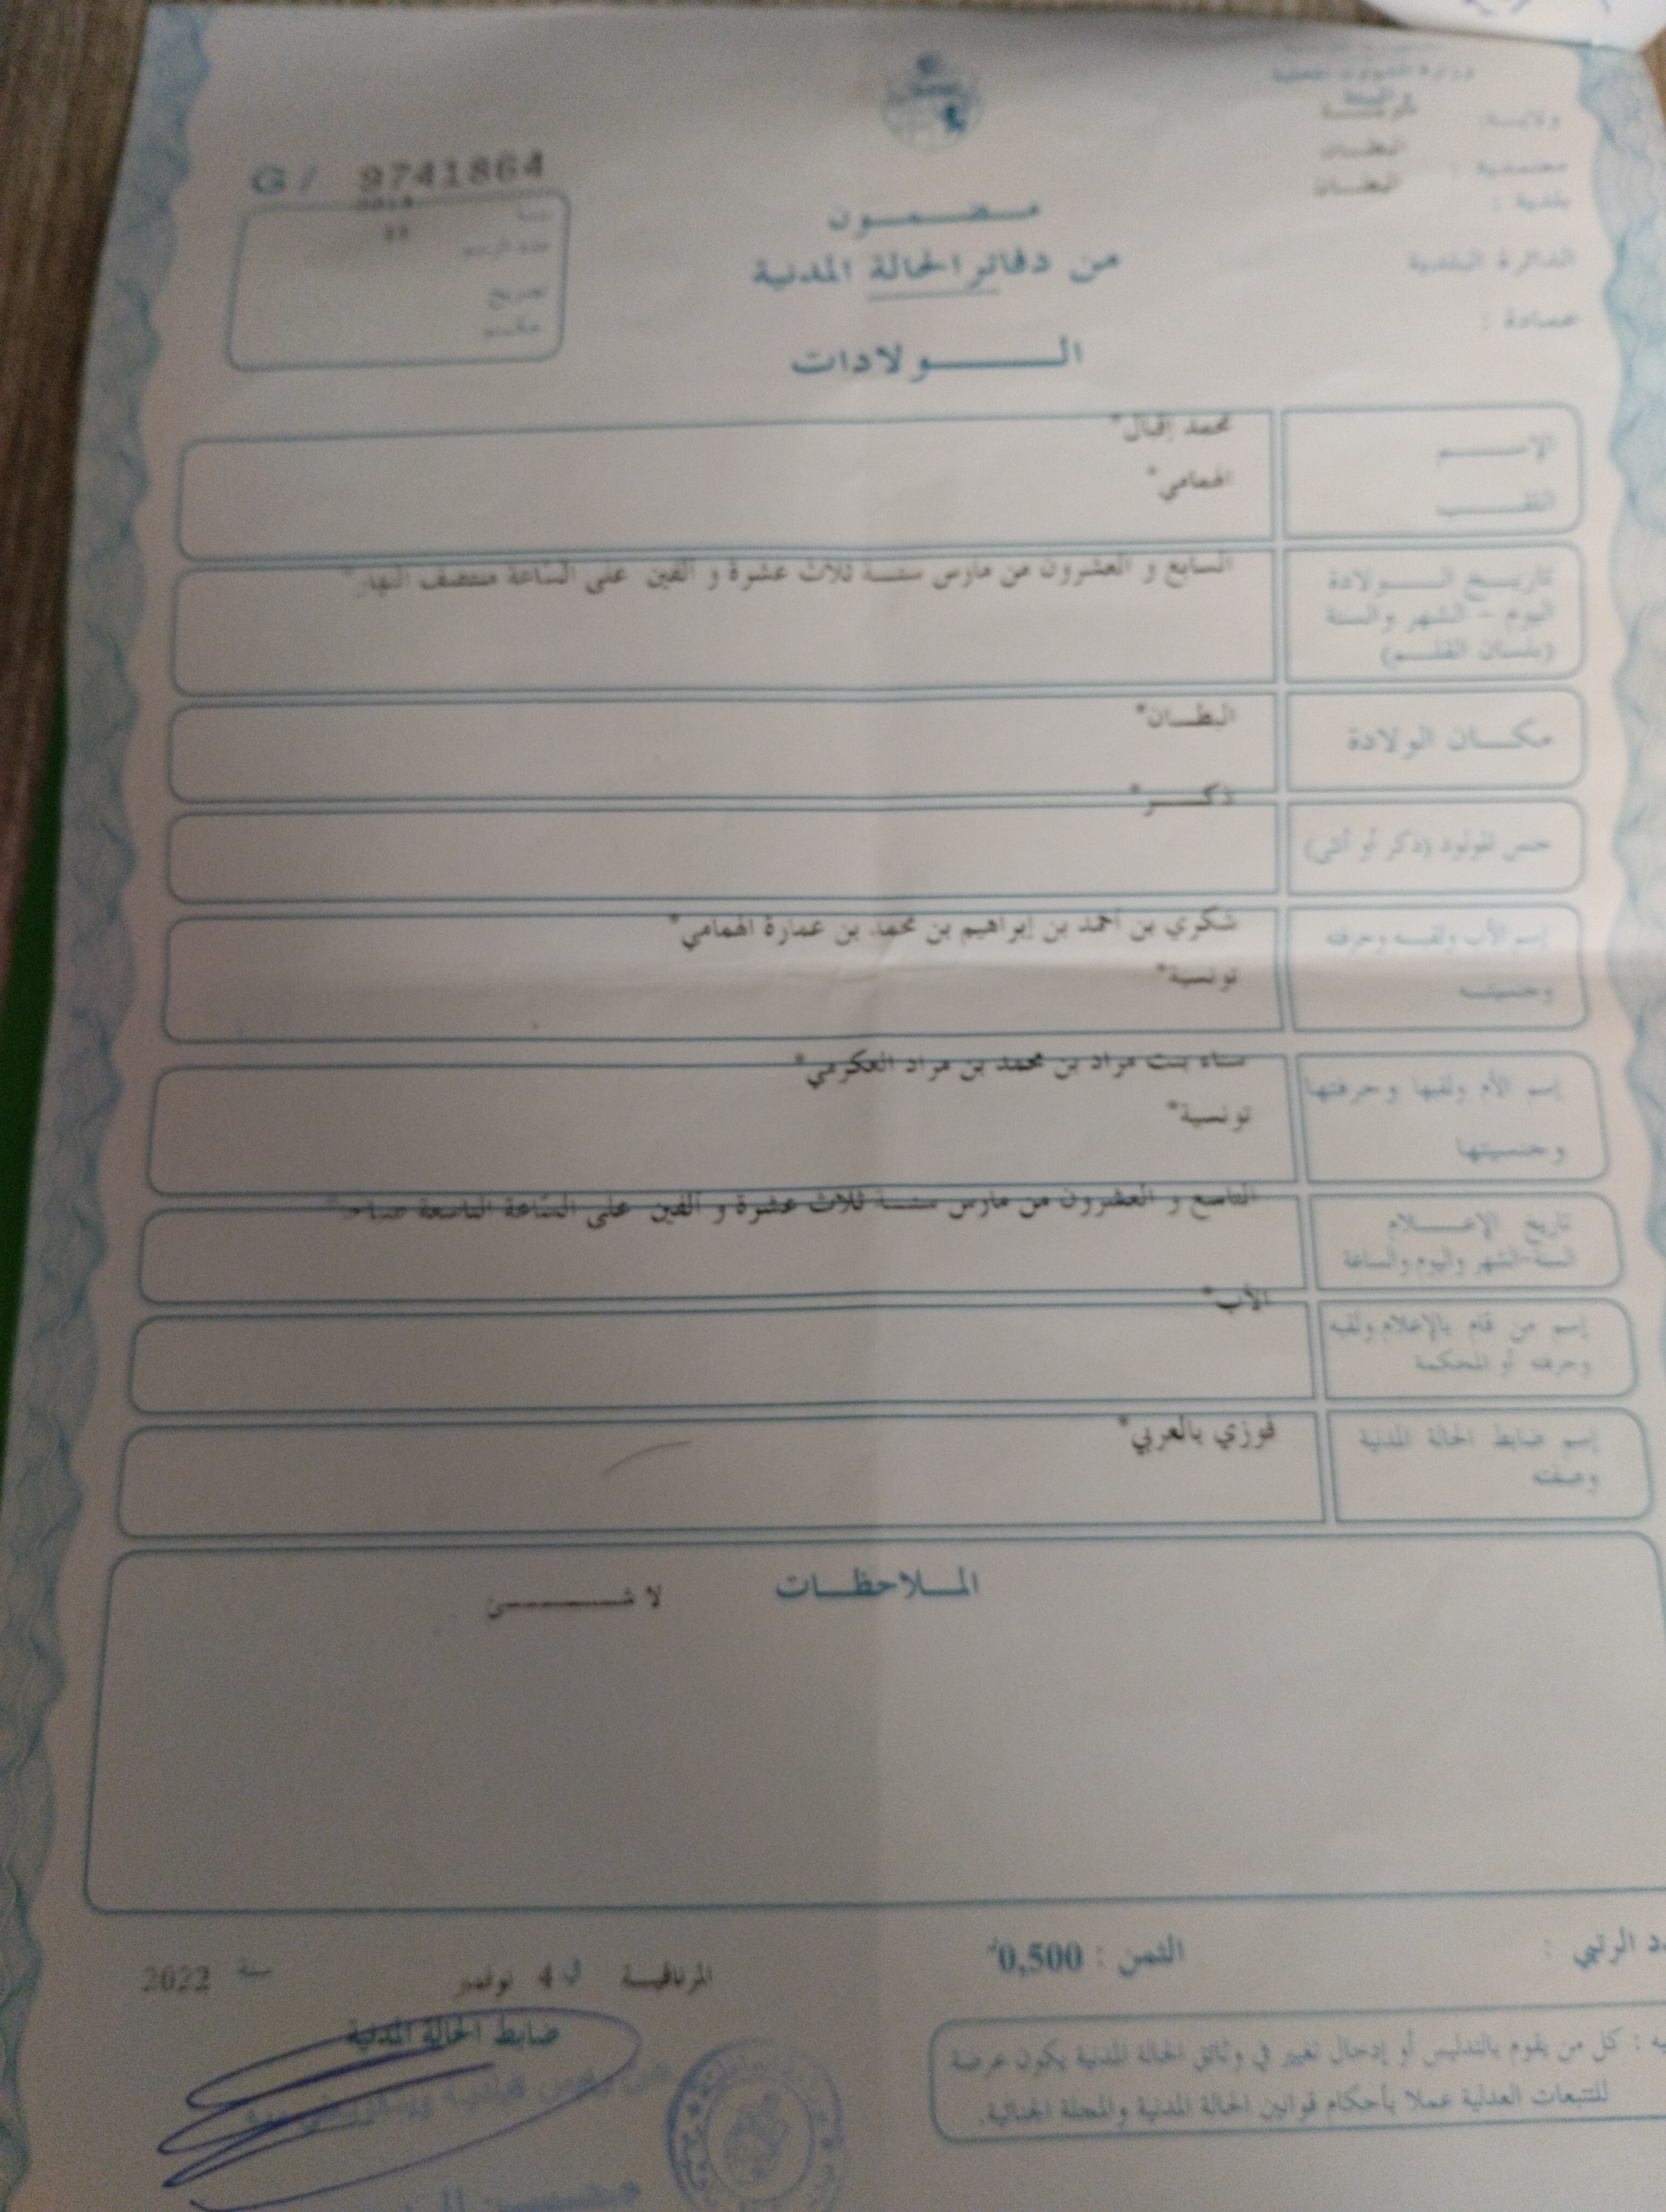 وزارة الشؤون المحلية
والبيئة
ولاية: منوبة
معتمدية : البطان
بلدية : البطان
الدائرة البلدية
عمادة :
G / 9741864
2013
عدد الرسم
تصريح
حكم
مضمون
من دفاتر الحالة المدنية
الولادات
الإسم محمد إقبال*
اللقب الهمامي*
تاريخ الولادة
اليوم - الشهر والسنة
(بلسان القلم)
السابع و العشرون من مارس سنة ثلاث عشرة و ألفين على الساعة منتصف النهار*
مكان الولادة البطان*
جنس المولود (ذكر أو أنثى) ذكر*
إسم الأب ولقبه وحرفته
وجنسيته
شكري بن أحمد بن إبراهيم بن محمد بن عمارة الهمامي*
تونسية*
إسم الأم ولقبها وحرفتها
وجنسيتها
سناء بنت مراد بن محمد بن مراد العكرمي*
تونسية*
تاريخ الإعلام
السنة-الشهر واليوم والساعة
التاسع و العشرون من مارس سنة ثلاث عشرة و ألفين على الساعة التاسعة صباحا*
إسم من قام بالإعلام ولقبه
وحرفته أو المحكمة
الأب*
إسم ضابط الحالة المدنية
وصفته
فوزي بالعربي*
الملاحظات
لا شئ
الرتبي :
الثمن : 0,500د
المرناقية في 4 نوفمبر سنة 2022
ضابط الحالة المدنية
كل من يقوم بالتدليس أو إدخال تغيير في وثائق الحالة المدنية يكون عرضة
للتتبعات العدلية عملا بأحكام قوانين الحالة المدنية والمجلة الجنائية.